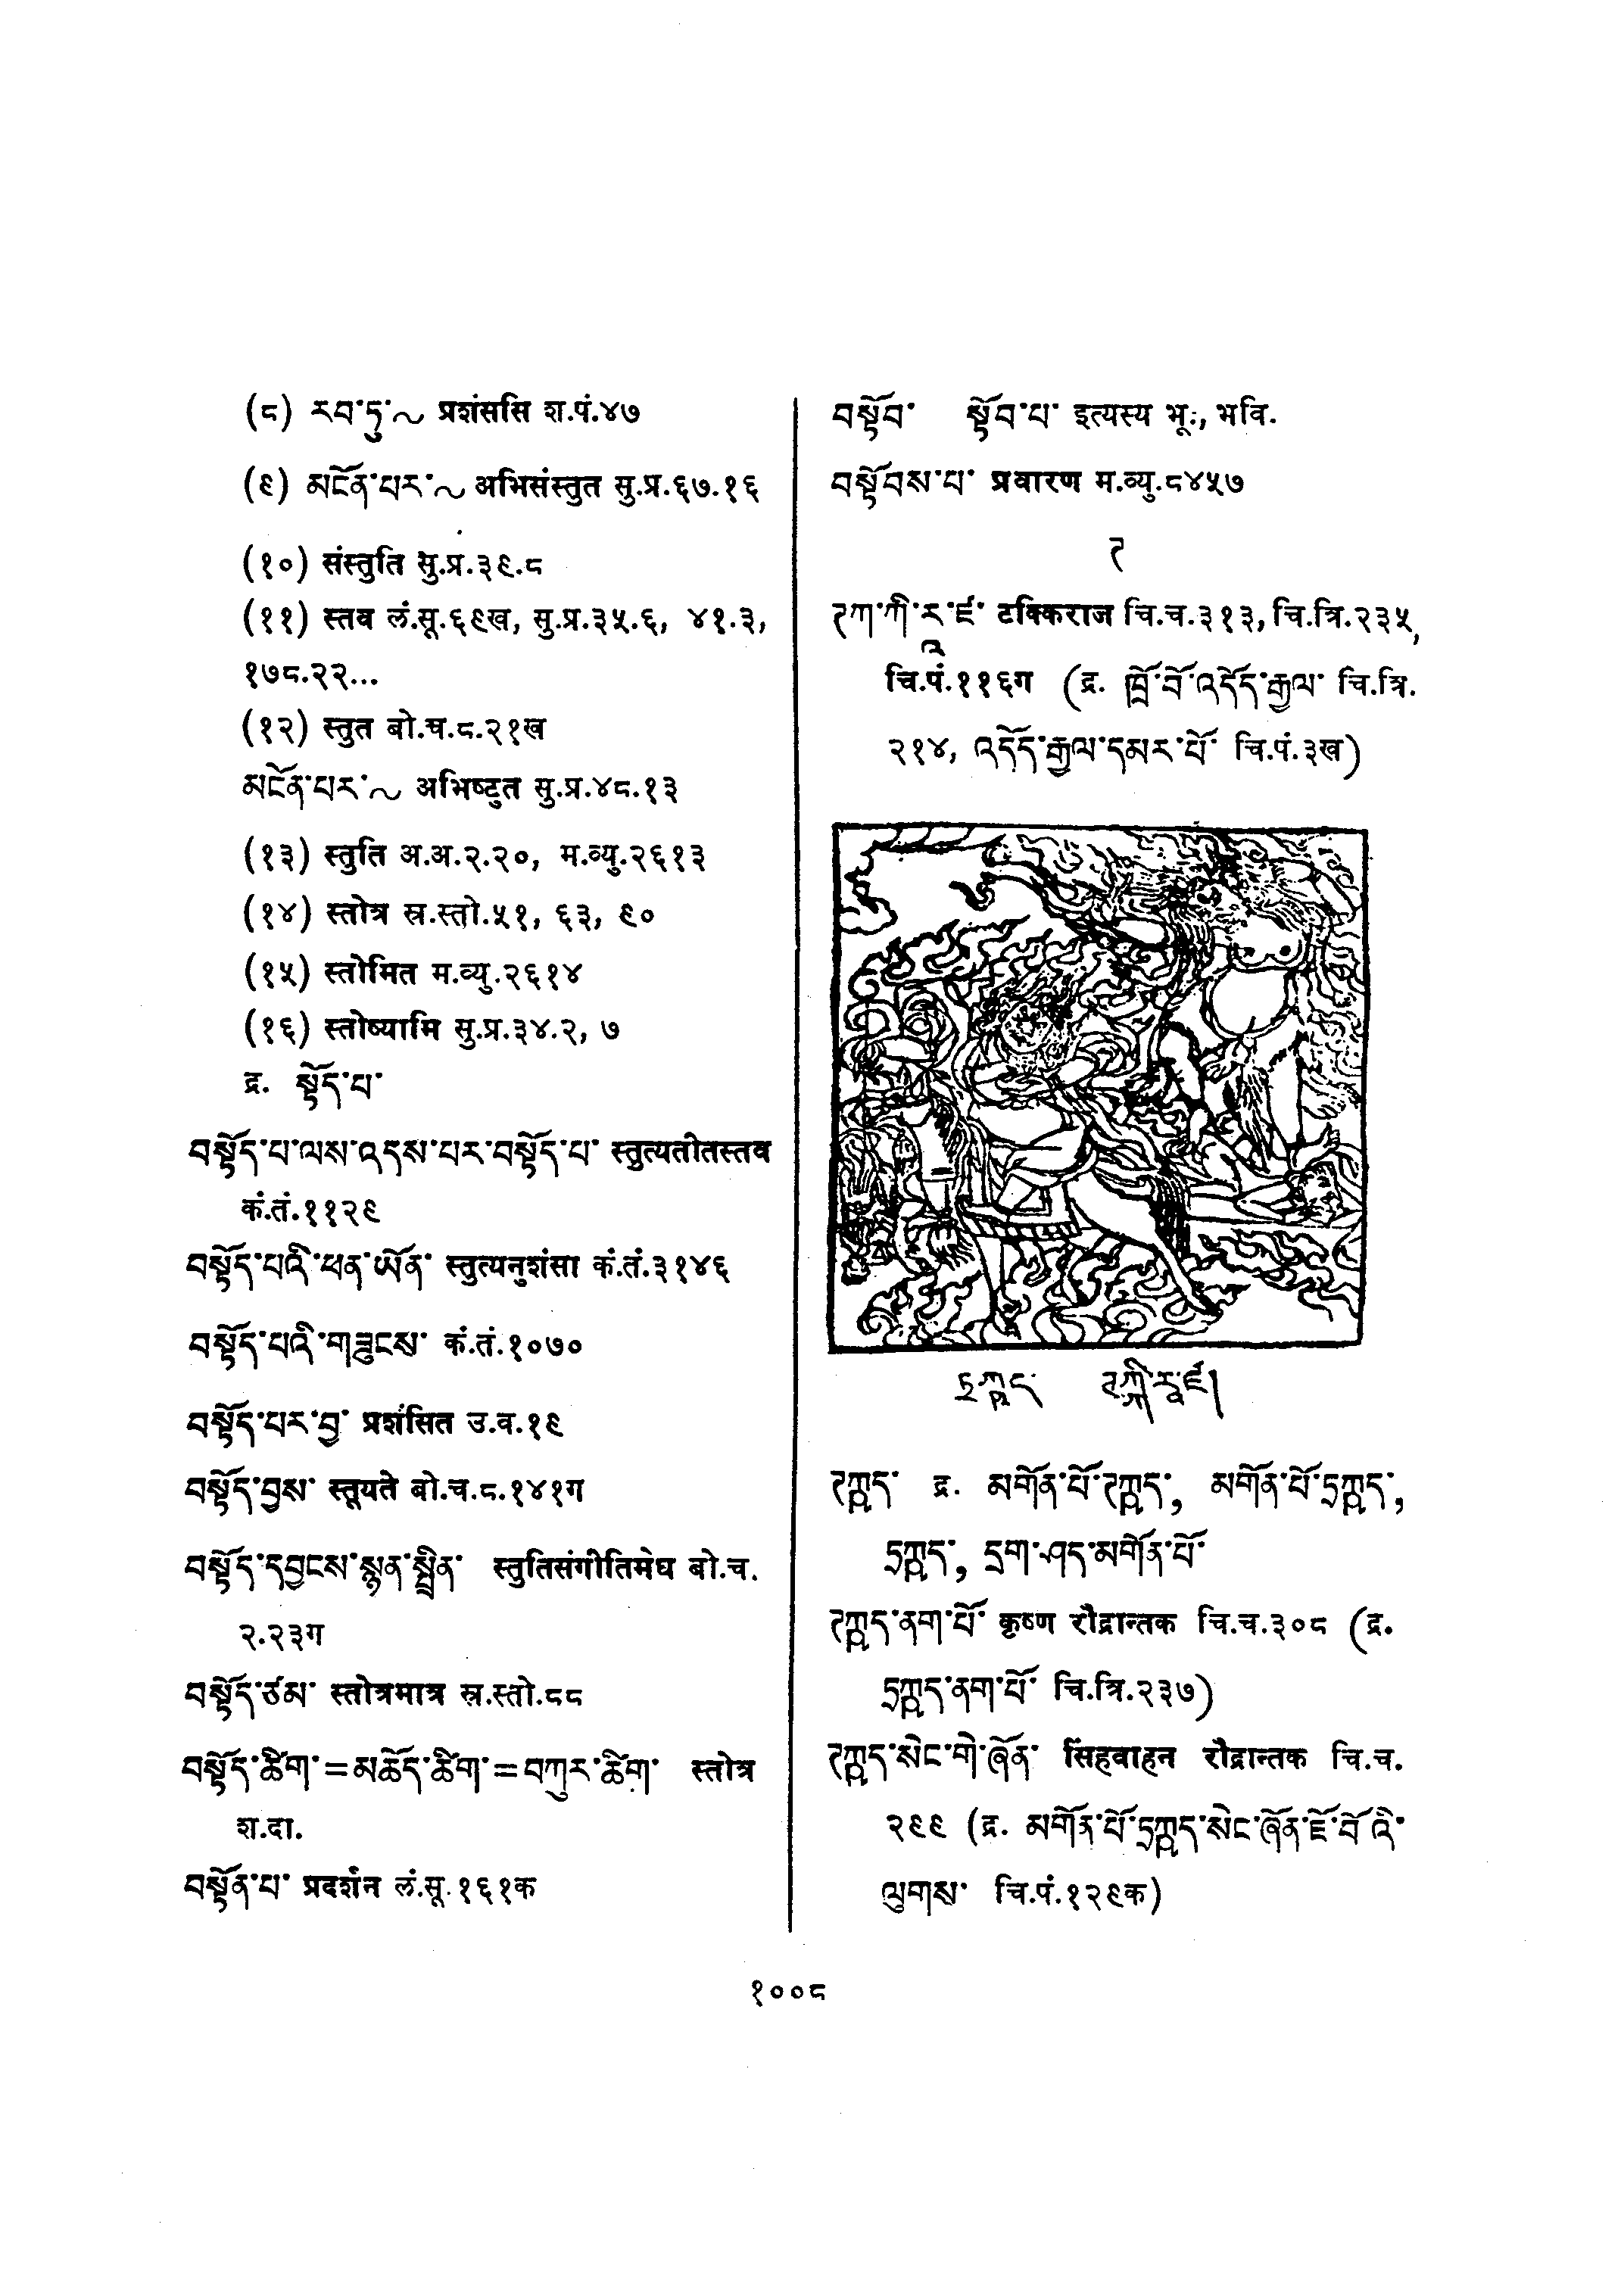 (८) རབ་ཏུ་~ प्रशंससि श.पं.४७
(९) མངོན་པར་~ अभिसंस्तुत सु.प्र.६७.१६
(१०) संस्तुति सु.प्र.३९.८
(११) स्तव लं.सू.६९ख, सु.प्र.३५.६, ४१.३,
१७८.२२...
(१२) स्तुत बो.च.८.२१ख
མངོན་པར་~ अभिष्टुत सु.प्र.४८.१३
(१३) स्तुति अ.अ.२.२०, म.व्यु.२६१३
(१४) स्तोत्र स्र.स्तो.५१, ६३, ९०
(१५) स्तोमित म.व्यु.२६१४
(१६) स्तोष्यामि सु.प्र.३४.२, ७
द्र. སྟོད་པ་
བསྟོད་པ་ལས་འདས་པར་བསྟོད་པ་ स्तुत्यतीतस्तव
कं.तं.११२९
བསྟོད་པའི་ཕན་ཡོན་ स्तुत्यनुशंसा कं.तं.३१४६
བསྟོད་པའི་གཟུངས་ कं.तं.१०७०
བསྟོད་པར་བྱ་ प्रशंसित उ.व.१९
བསྟོད་བྱས་ स्तूयते बो.च.८.१४१ग
བསྟོད་དབྱངས་སྙན་སྤྲིན་ स्तुतिसंगीतिमेघ बो.च.
२.२३ग
བསྟོད་ཙམ་ स्तोत्रमात्र स्र.स्तो.८८
བསྟོད་ཚིག་=མཆོད་ཚིག་=བཀུར་ཚིག་ स्तोत्र
श.दा.
བསྟོན་པ་ प्रदर्शन लं.सू.१६१क
བསྟོབ་ སྟོབ་པ་ इत्यस्य भू:, भवि.
བསྟོབས་པ་ प्रवारण म.व्यु.८४५७
ཊ
ཊཀ་ཀི་རཱ་ཛ་ टक्किराज चि.च.३१३, चि.त्रि.२३५,
चि.पं.११६ग (द्र. ཁྲོ་བོ་འདོད་རྒྱལ་ चि.त्रि.
२१४, འདོད་རྒྱལ་དམར་པོ་ चि.पं.३ख)
ཊཀྐིརཱཛ།
ཊཀྐད་ द्र. མགོན་པོ་ཊཀྐད་, མགོན་པོ་ཏྲཀྐད་,
ཏྲཀྐད་, དྲག་ཤད་མགོན་པོ་
ཊཀྐད་ནག་པོ་ कृष्ण रौद्रान्तक चि.च.३०८ (द्र.
ཏྲཀྐད་ནག་པོ་ चि.त्रि.२३७)
ཊཀྐད་སེང་གེ་ཞོན་ सिंहवाहन रौद्रान्तक चि.च.
२९९ (द्र. མགོན་པོ་ཏྲཀྐད་སེང་ཞོན་ཇོ་བོ་འི་
ལུགས་ चि.पं.१२९क)
१००८